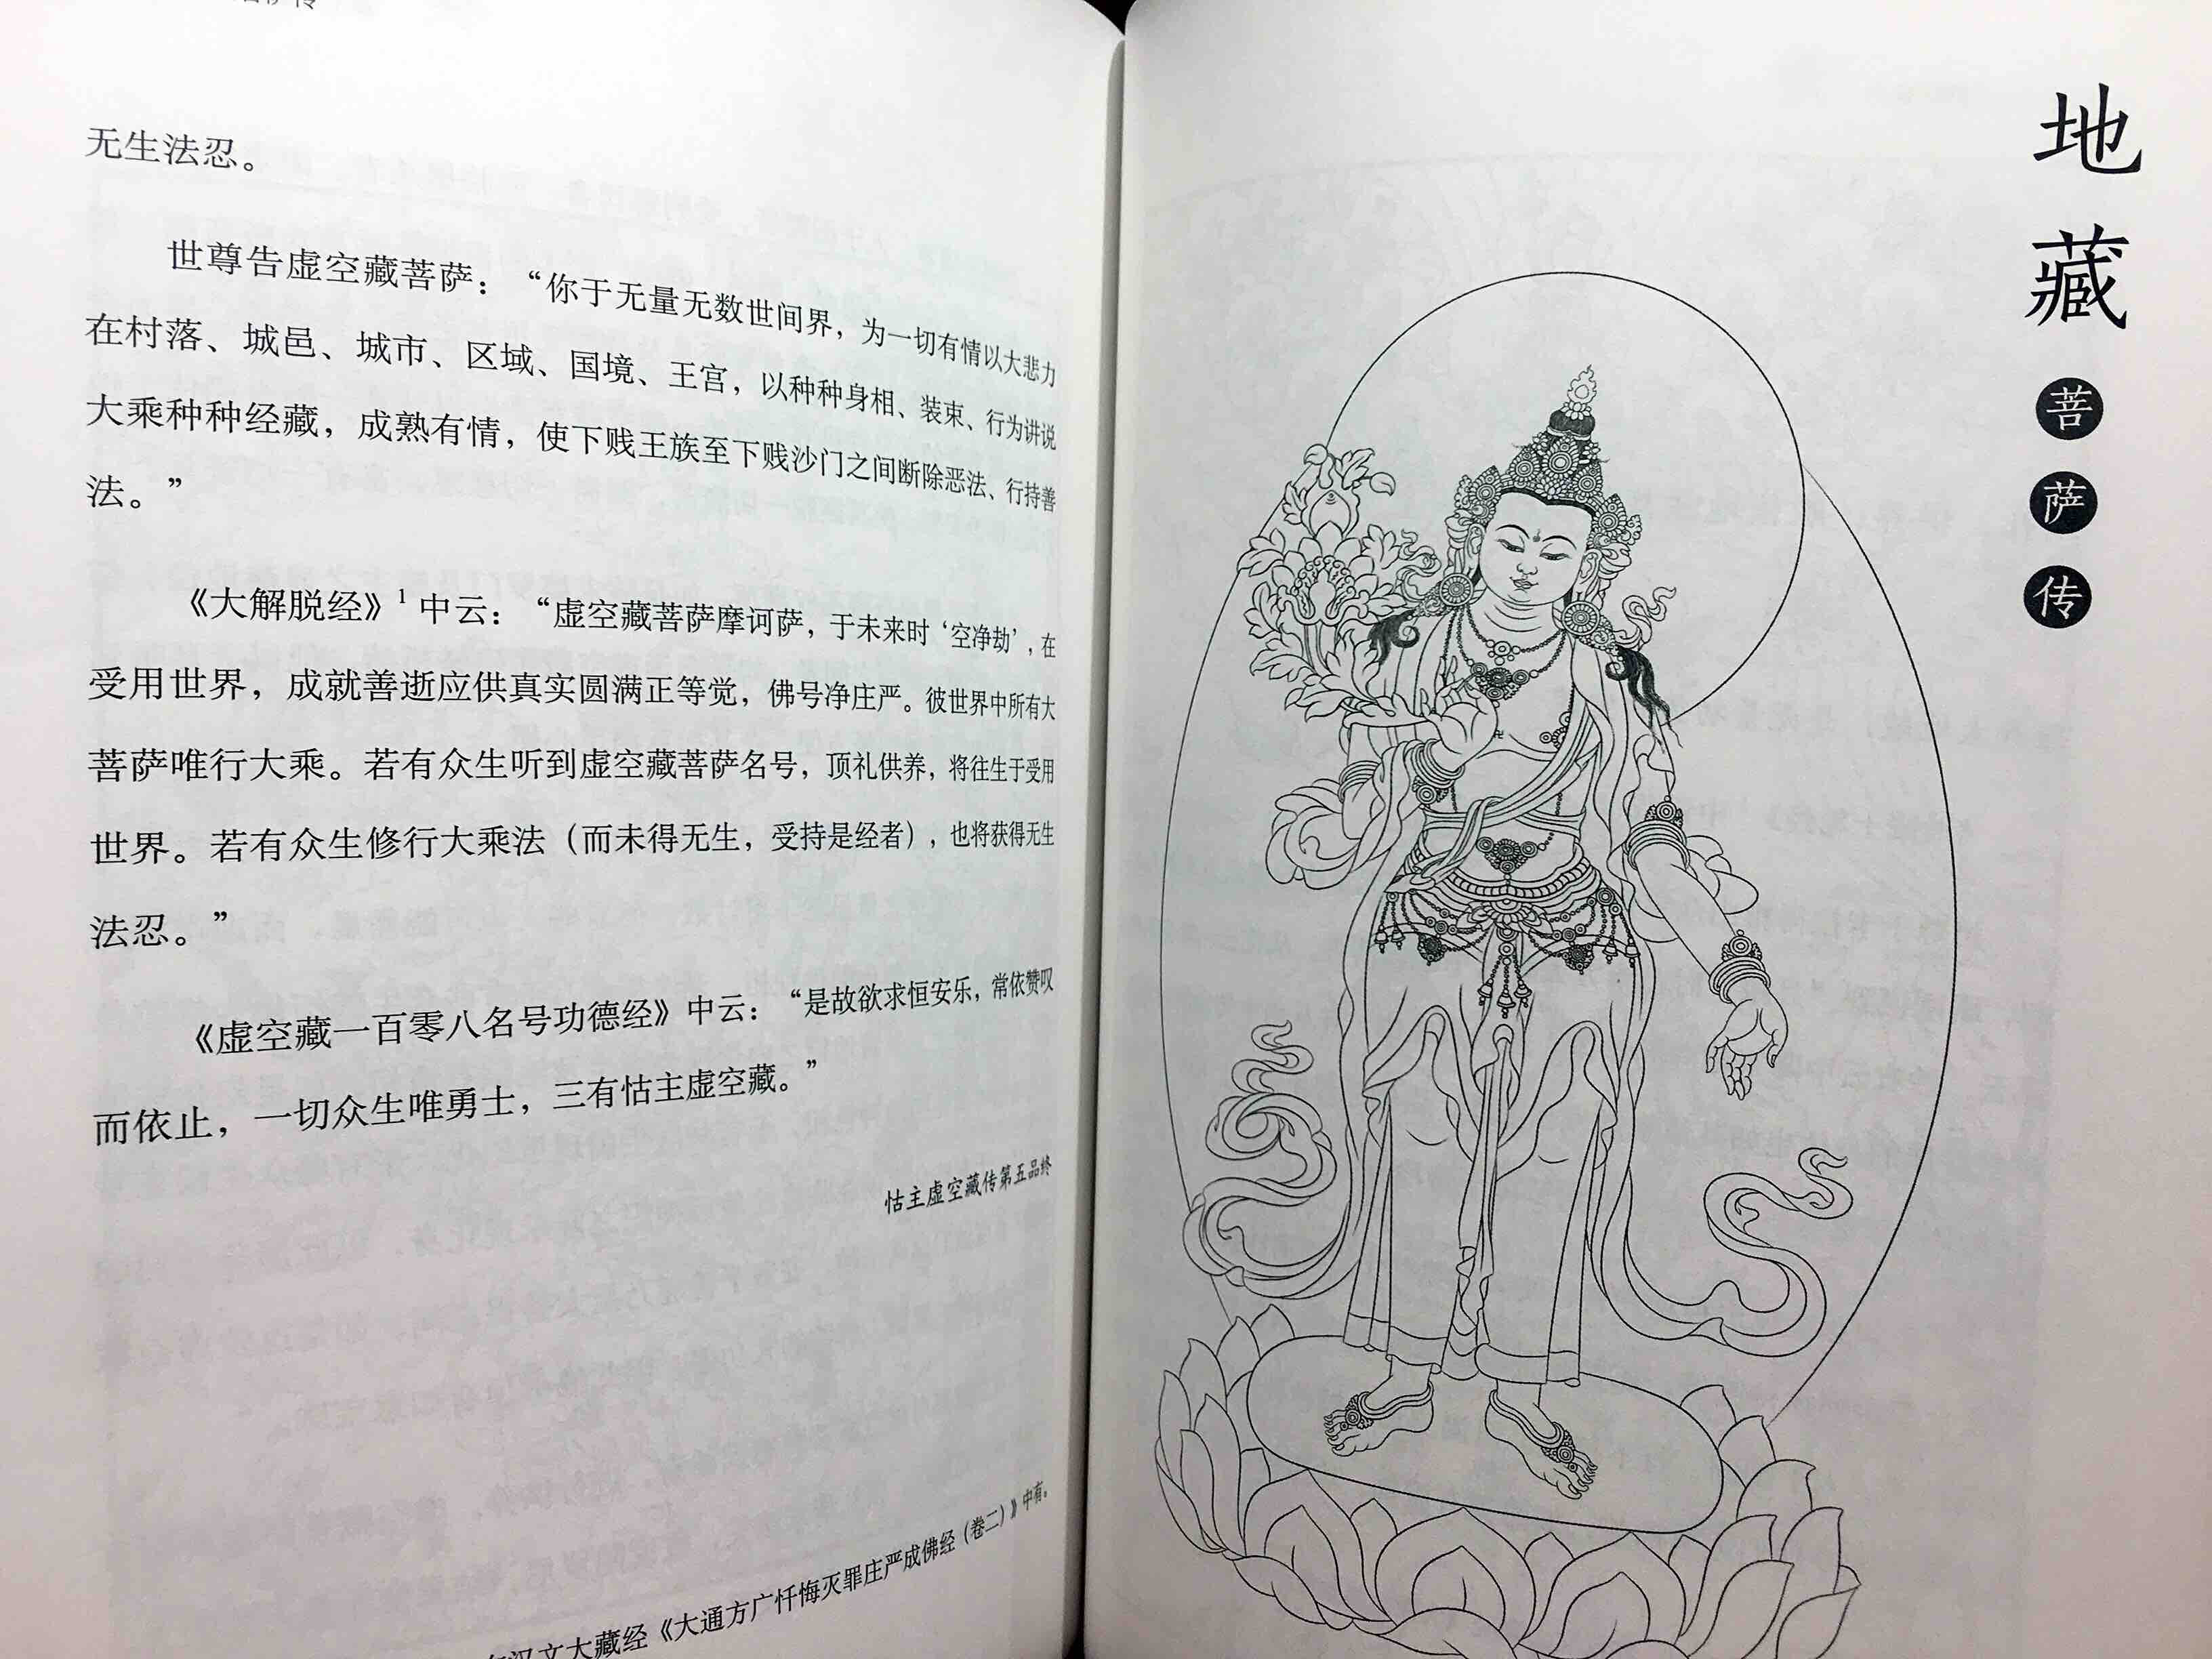 无生法忍。
世尊告虚空藏菩萨：“你于无量无数世间界，为一切有情以大悲力
在村落、城邑、城市、区域、国境、王宫，以种种身相、装束、行为讲说
大乘种种经藏，成熟有情，使下贱王族至下贱沙门之间断除恶法、行持善
法。”
《大解脱经》1 中云：“虚空藏菩萨摩诃萨，于未来时‘空净劫’，在
受用世界，成就善逝应供真实圆满正等觉，佛号净庄严。彼世界中所有大
菩萨唯行大乘。若有众生听到虚空藏菩萨名号，顶礼供养，将往生于受用
世界。若有众生修行大乘法（而未得无生，受持是经者），也将获得无生
法忍。”
《虚空藏一百零八名号功德经》中云：“是故欲求恒安乐，常依赞叹
而依止，一切众生唯勇士，三有怙主虚空藏。”
怙主虚空藏传第五品终
汉文大藏经《大通方广忏悔灭罪庄严成佛经（卷二）》中有。
地藏菩萨传